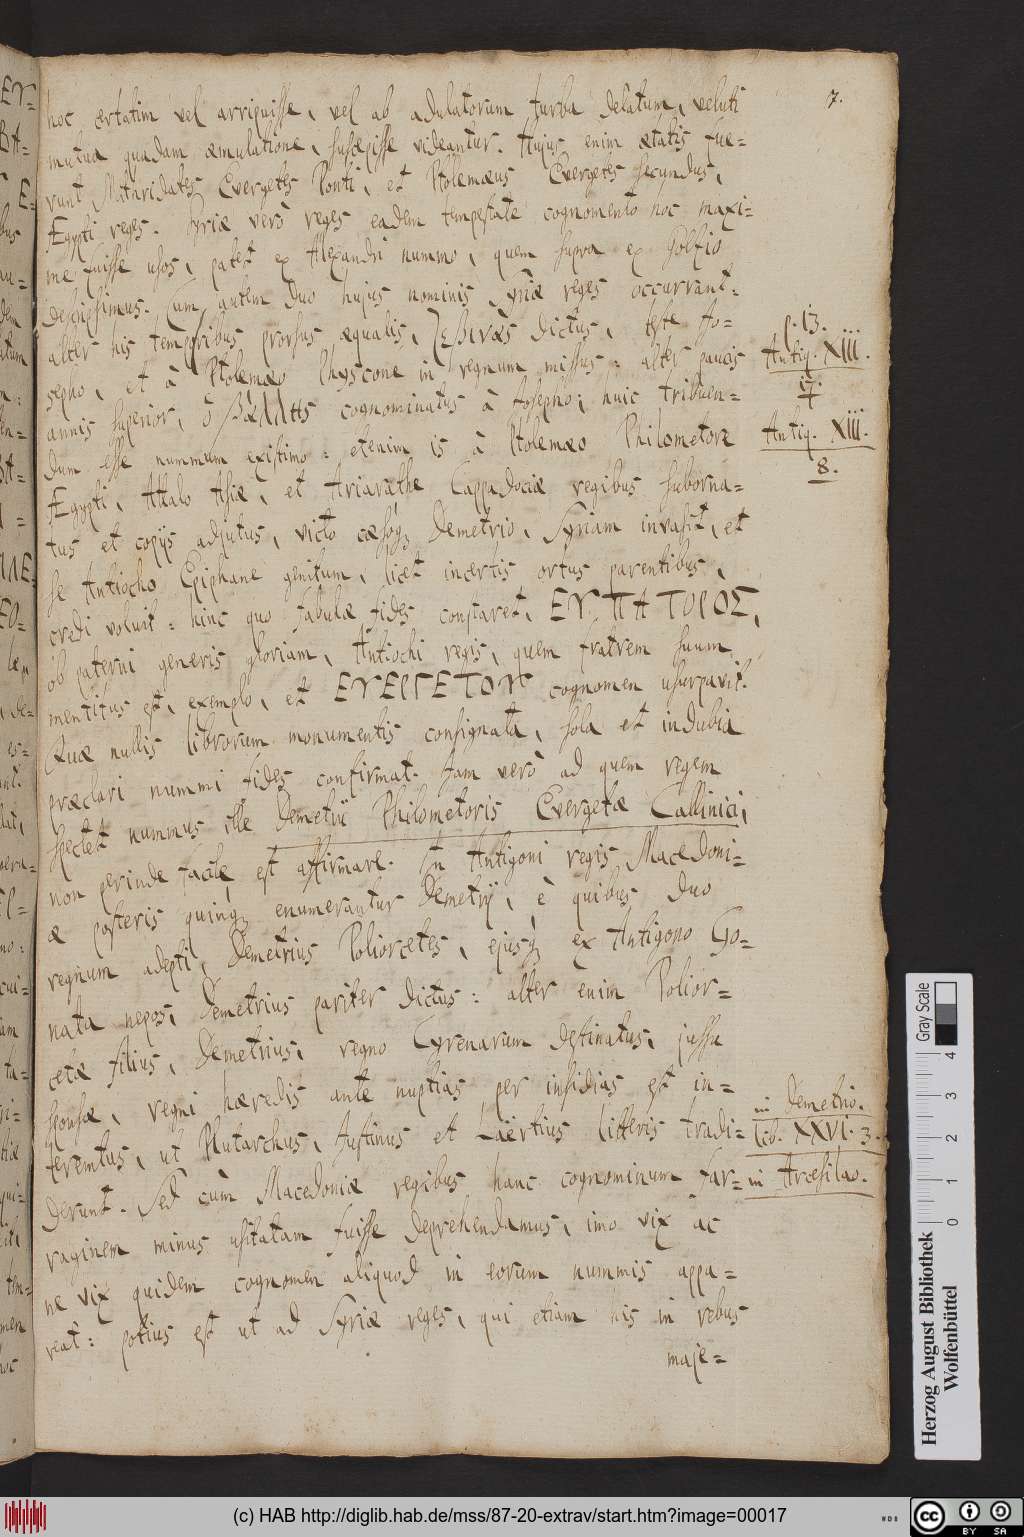 7.
hoc certatim vel arripuisse, vel ab adulatorum turba delatum, veluti
mutua quadam æmulatione, suscepisse videantur. Hujus enim ætatis fue=
runt Mithridates Evergetes Ponti, et Ptolemæus Evergetes secundus,
Ægypti reges. Syriæ verò reges eadem tempestate cognomento hoc maxi=
me fuisse usos, patet ex Alexandri nummo, quem supra ex Golzio
descripsimus. Cum autem duo hujus nominis Syriæ reges occurrant:
alter his temporibus prorsus æqualis, dictus, teste Jo=
sepho, et à Ptolemæo Physcone in regnum missus: alter paucis
annis superior, ὁ cognominatus à Josepho; huic tribuen=
dum esse nummum existimo: etenim is à Ptolemæo Philometore
Ægypti, Attalo Asiæ, et Ariarathe Cappadociæ regibus suborna=
tus et copijs adjutus, victo cæsoq3 Demetrio, Syriam invasit, et
se Antiocho Epiphane genitum, licet incertis ortus parentibus,
credi voluit: hinc quo fabulæ fides constaret, ΕΥΠΑΤΟΡΟΣ,
ob paterni generis gloriam, Antiochi regis, quem fratrem suum
mentitus est, exemplo, et ΕΥΕΡΓΕΤΟΥ cognomen usurpavit.
Quæ nullis librorum monumentis consignata, sola et indubia
præclari nummi fides confirmat. Jam verò ad quem regem
spectet nummus ille Demetrii Philometoris Evergetæ Callinici,
non perinde facile est affirmare. In Antigoni regis Macedoni=
æ posteris quinq3 enumerantur Demetrij, è quibus duo
regnum adepti, Demetrius Poliorcetes, ejusq3 ex Antigono Go=
nata nepos, Demetrius pariter dictus: alter enim Polior=
cetæ filius, Demetrius, regno Cyrenarum destinatus, jussu
sponsæ, regni hæredis ante nuptias per insidias est in=
teremtus, ut Plutarchus, Justinus et Laërtius litteris tradi=
derunt. Sed cùm Macedoniæ regibus hanc cognominum far=
raginem minus usitatam fuisse deprehendamus, imo vix ac
ne vix quidem cognomen aliquod in eorum nummis appa=
reat: potius est ut ad Syriæ reges, qui etiam his in rebus
maje=
p. 13.
Antiq. XIII.
17.
Antiq. XIII.
8.
in Demetrio.
Lib. XXVI. 3.
in Arcesilao.
Gray Scale
0 1 2 3 4
Herzog August Bibliothek
Wolfenbüttel
(c) HAB http://diglib.hab.de/mss/87-20-extrav/start.htm?image=00017
cc BY SA